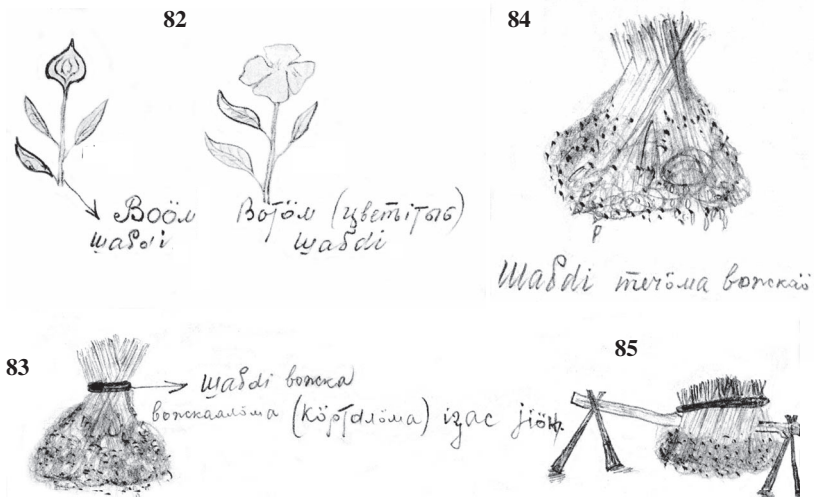 82
Воӧм
шабді
Вотӧм (цветітыс)
шабді
84
Шабді течӧма вожкаӧ
83
шабді вожка
вожкаалӧма (кӧртдлӧма) ізас
85